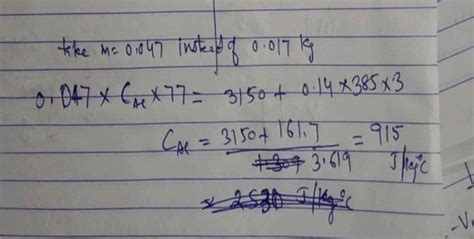 take m = 0.047 instead of 0.017 kg
0.047 × C_Al × 77 = 3150 + 0.14 × 385 × 3
C_Al = 3150 + 161.7 / 3.619 = 915 J/kg°C
2530 J/kg°C